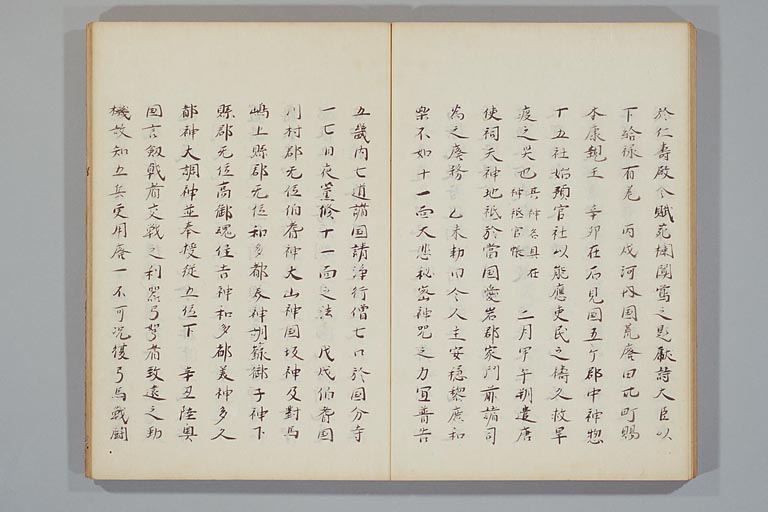 於仁壽殿令賦花欄聞鶯之題獻詩大臣以
下給祿有差　丙戌河內国荒廢田卅町賜
本康親王　辛卯在石見国五ケ郡中神惣
十五社始預官社以能應吏民之禱久救旱
疫之災也其神名具在神祇官帳　二月甲午朔遣唐
使祠天神地祇於當国愛宕郡家門前諸司
為之廢務　乙未勅曰令人主安穏黎庶和
樂不如十一面大悲秘密神咒之力宜普告
五畿內七道諸国請淨行僧七口於国分寺
一七日夜薫修十一面之法　戊戌伯耆国
川村郡无位伯耆神大山神国坂神及對馬
嶋上縣郡无位和多都美神胡簶御子神下
縣郡无位高御魂住吉神和多都美神多久
都神大調神並奉授從五位下　辛丑陸奧
国言釼戟者交戰之利器弓弩者致遠之勁
機故知五兵更用廢一不可况復弓馬戰鬪